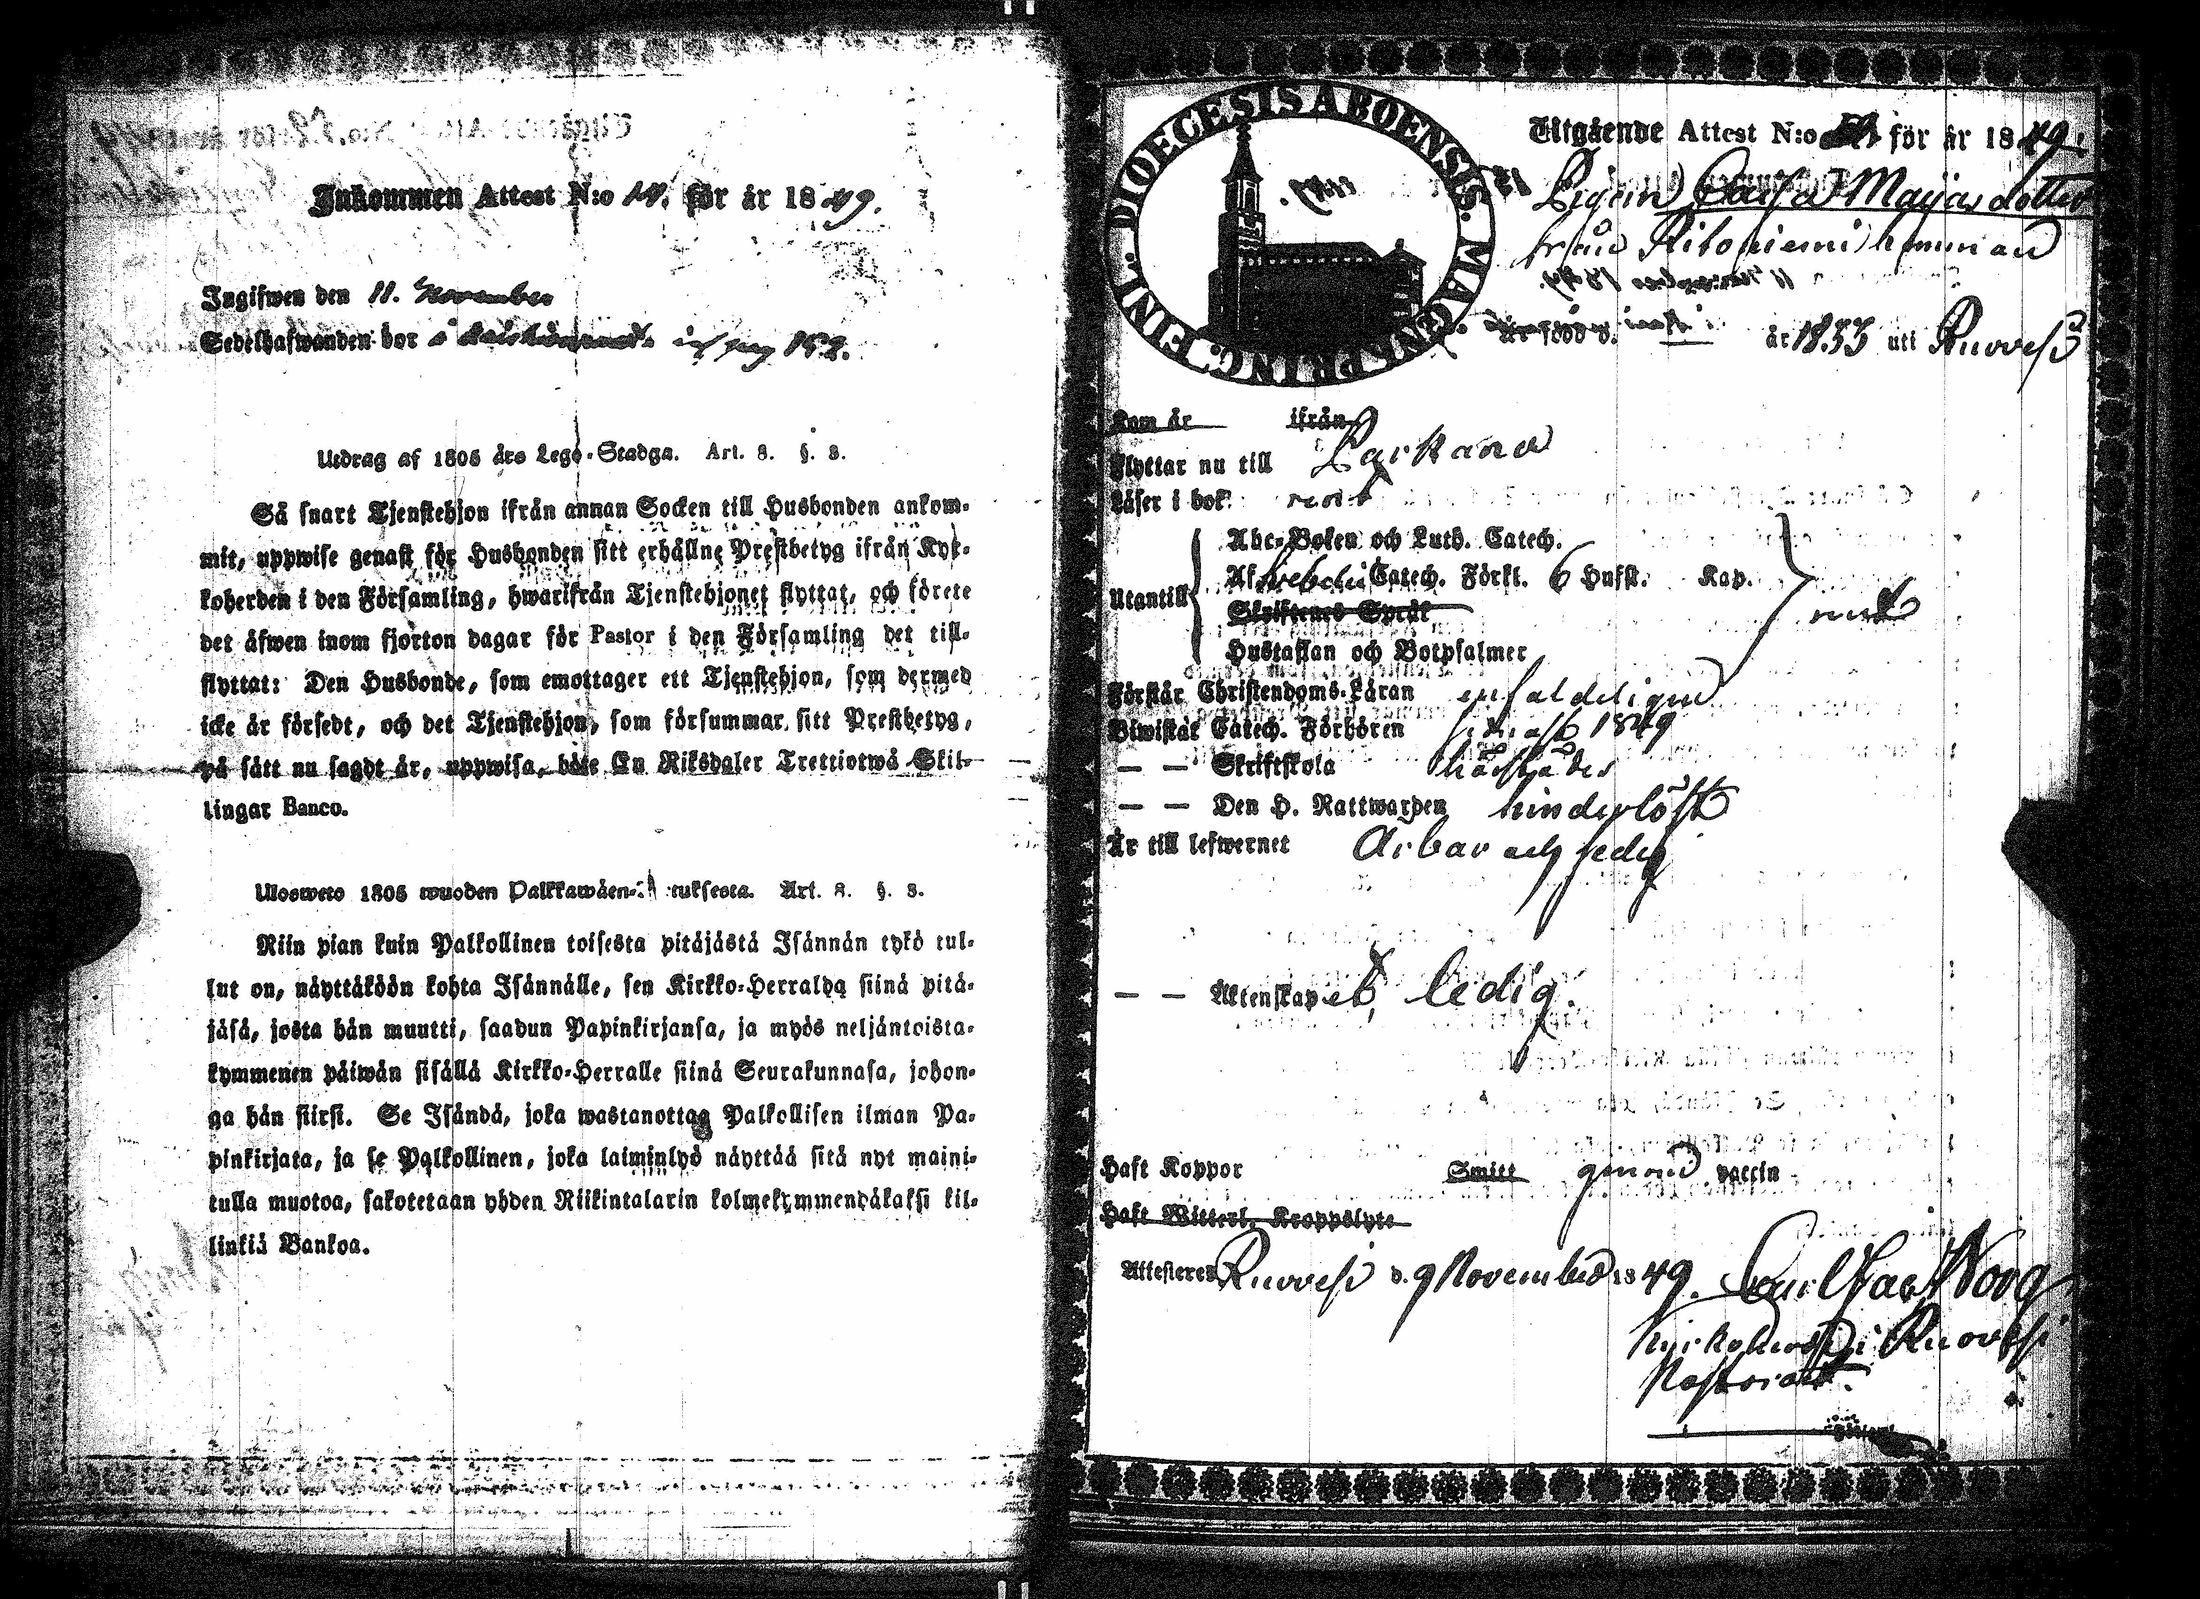 Inkommen Attest N:o 14. för år 1849.
Ingifwen den 11. November
Sedelhafwanden bor
Utdrag af 1805 års Lego-Stadga. Art. 8. §. 8.
Så snart Tjenstehjon ifrån annan Socken till Husbonden ankom-
mit, uppwise genast för Husbonden sitt erhållne Prestbetyg ifrån Kyr-
koherden i den Församling, hwarifrån Tjenstehjonet flyttat, och förete
det äfwen inom fjorton dagar för Pastor i den Församling det till-
flyttat: Den Husbonde, som emottager ett Tjenstehjon, som dermed
icke är försedt, och det Tjenstehjon, som försummar sitt Prestbetyg,
på sätt nu sagdt är, uppwisa, böte En Riksdaler Trettiotwå Skil-
lingar Banco.
Ulosweto 1805 wuoden Palkkawäen- Art. 8. §. 8.
Niin pian kuin Palkollinen toisesta pitäjästä Isännän tykö tul-
lut on, näyttäköön kohta Isännälle, sen Kirkko-Herralda siinä pitä-
jäsä, josta hän muutti, saadun Papinkirjansa, ja myös neljäntoista-
kymmenen päiwän sisällä Kirkko-Herralle siinä Seurakunnasa, johon-
ga hän siirsi. Se Isändä, joka wastanottaa Palkollisen ilman Pa-
pinkirjata, ja se Palkollinen, joka laiminlyö näyttää sitä nyt maini-
tulla muotoa, sakotetaan yhden Riikintalarin kolmekymmendäkaksi kil-
linkiä Bankoa.
DIOECESIS ABOENSIS. MAGN. PRINC. FINL.
Utgående Attest N:o för år 1849.
Pigan Majasdotter
från Ritoniemi hemman
är född d. år 1833 uti Ruovesi
Kom år ifrån
Flyttar nu till Parkano
Läser i bok:
Utantill
Abc-Boken och Luth. Catech.
Af Svebelii Catech. Förkl. 6 Hufst. Kap.
Skriftenes Språk
Hustaflan och Botpsalmer
Förstår Christendoms-Läran enfaldeligen
Biwistat Catech. Förhören sidst 1849
— — Skriftskola
— — Den H. Nattwarden hinderlöst
Är till lefwernet Ärbar och sedig
— — Äktenskapet, ledig.
Haft Koppor Smitt genom vaccin
Haft Witterl. Kroppslyte
Attesteras Ruovesi d. 9 November 1849.
Kyrkoherde i Ruovesi
Pastorat.